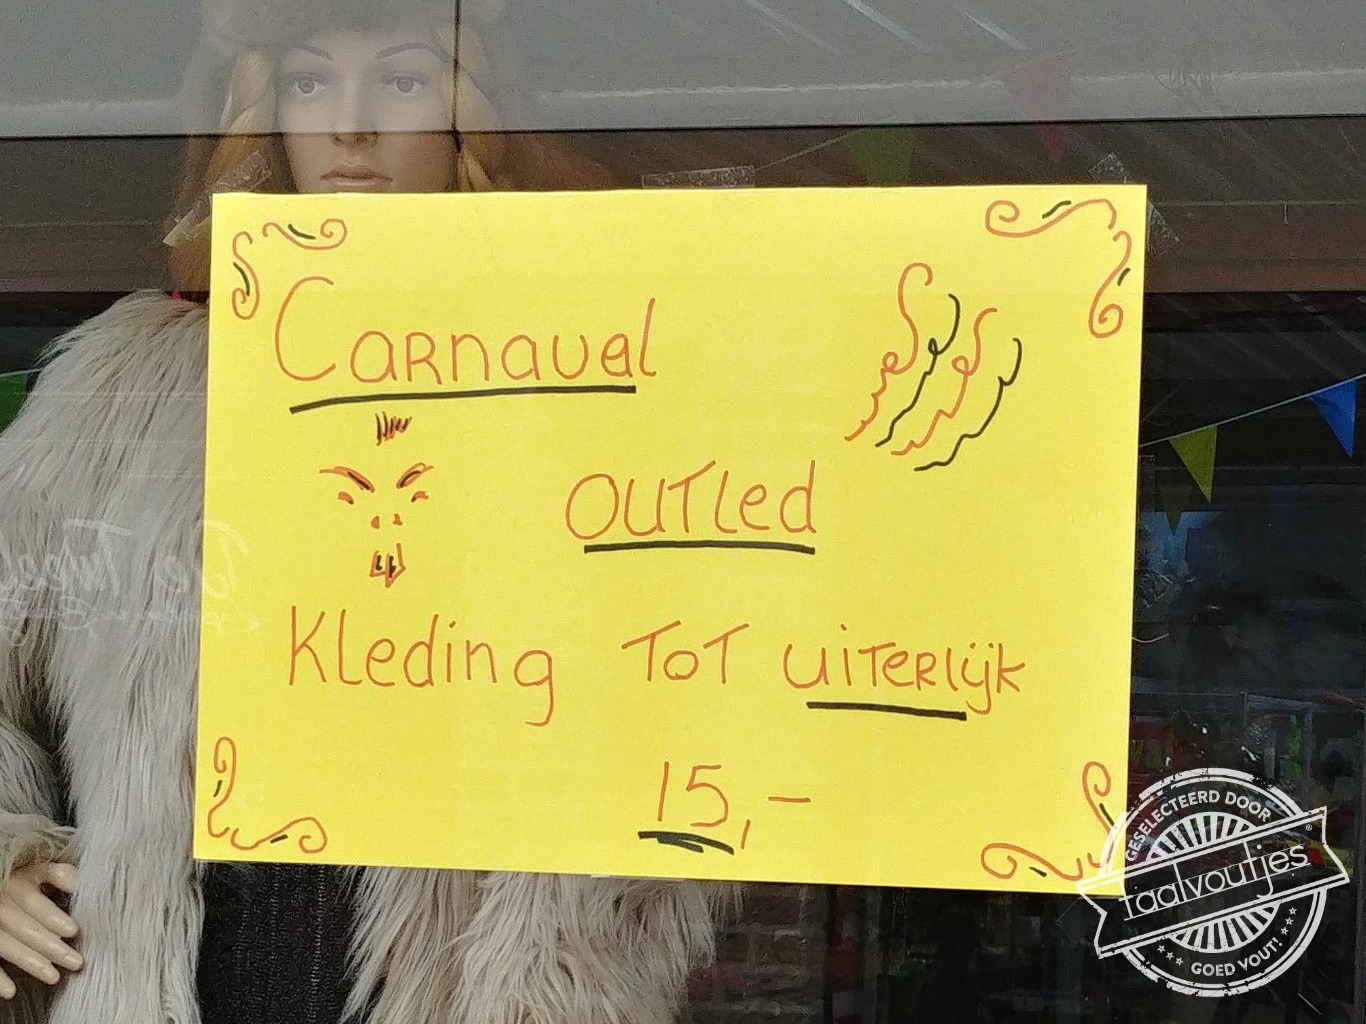 Carnaval
OUTLed
Kleding TOT uiterlijk
15,-
GESELECTEERD DOOR
taalvoutjes®
GOED VOUT!